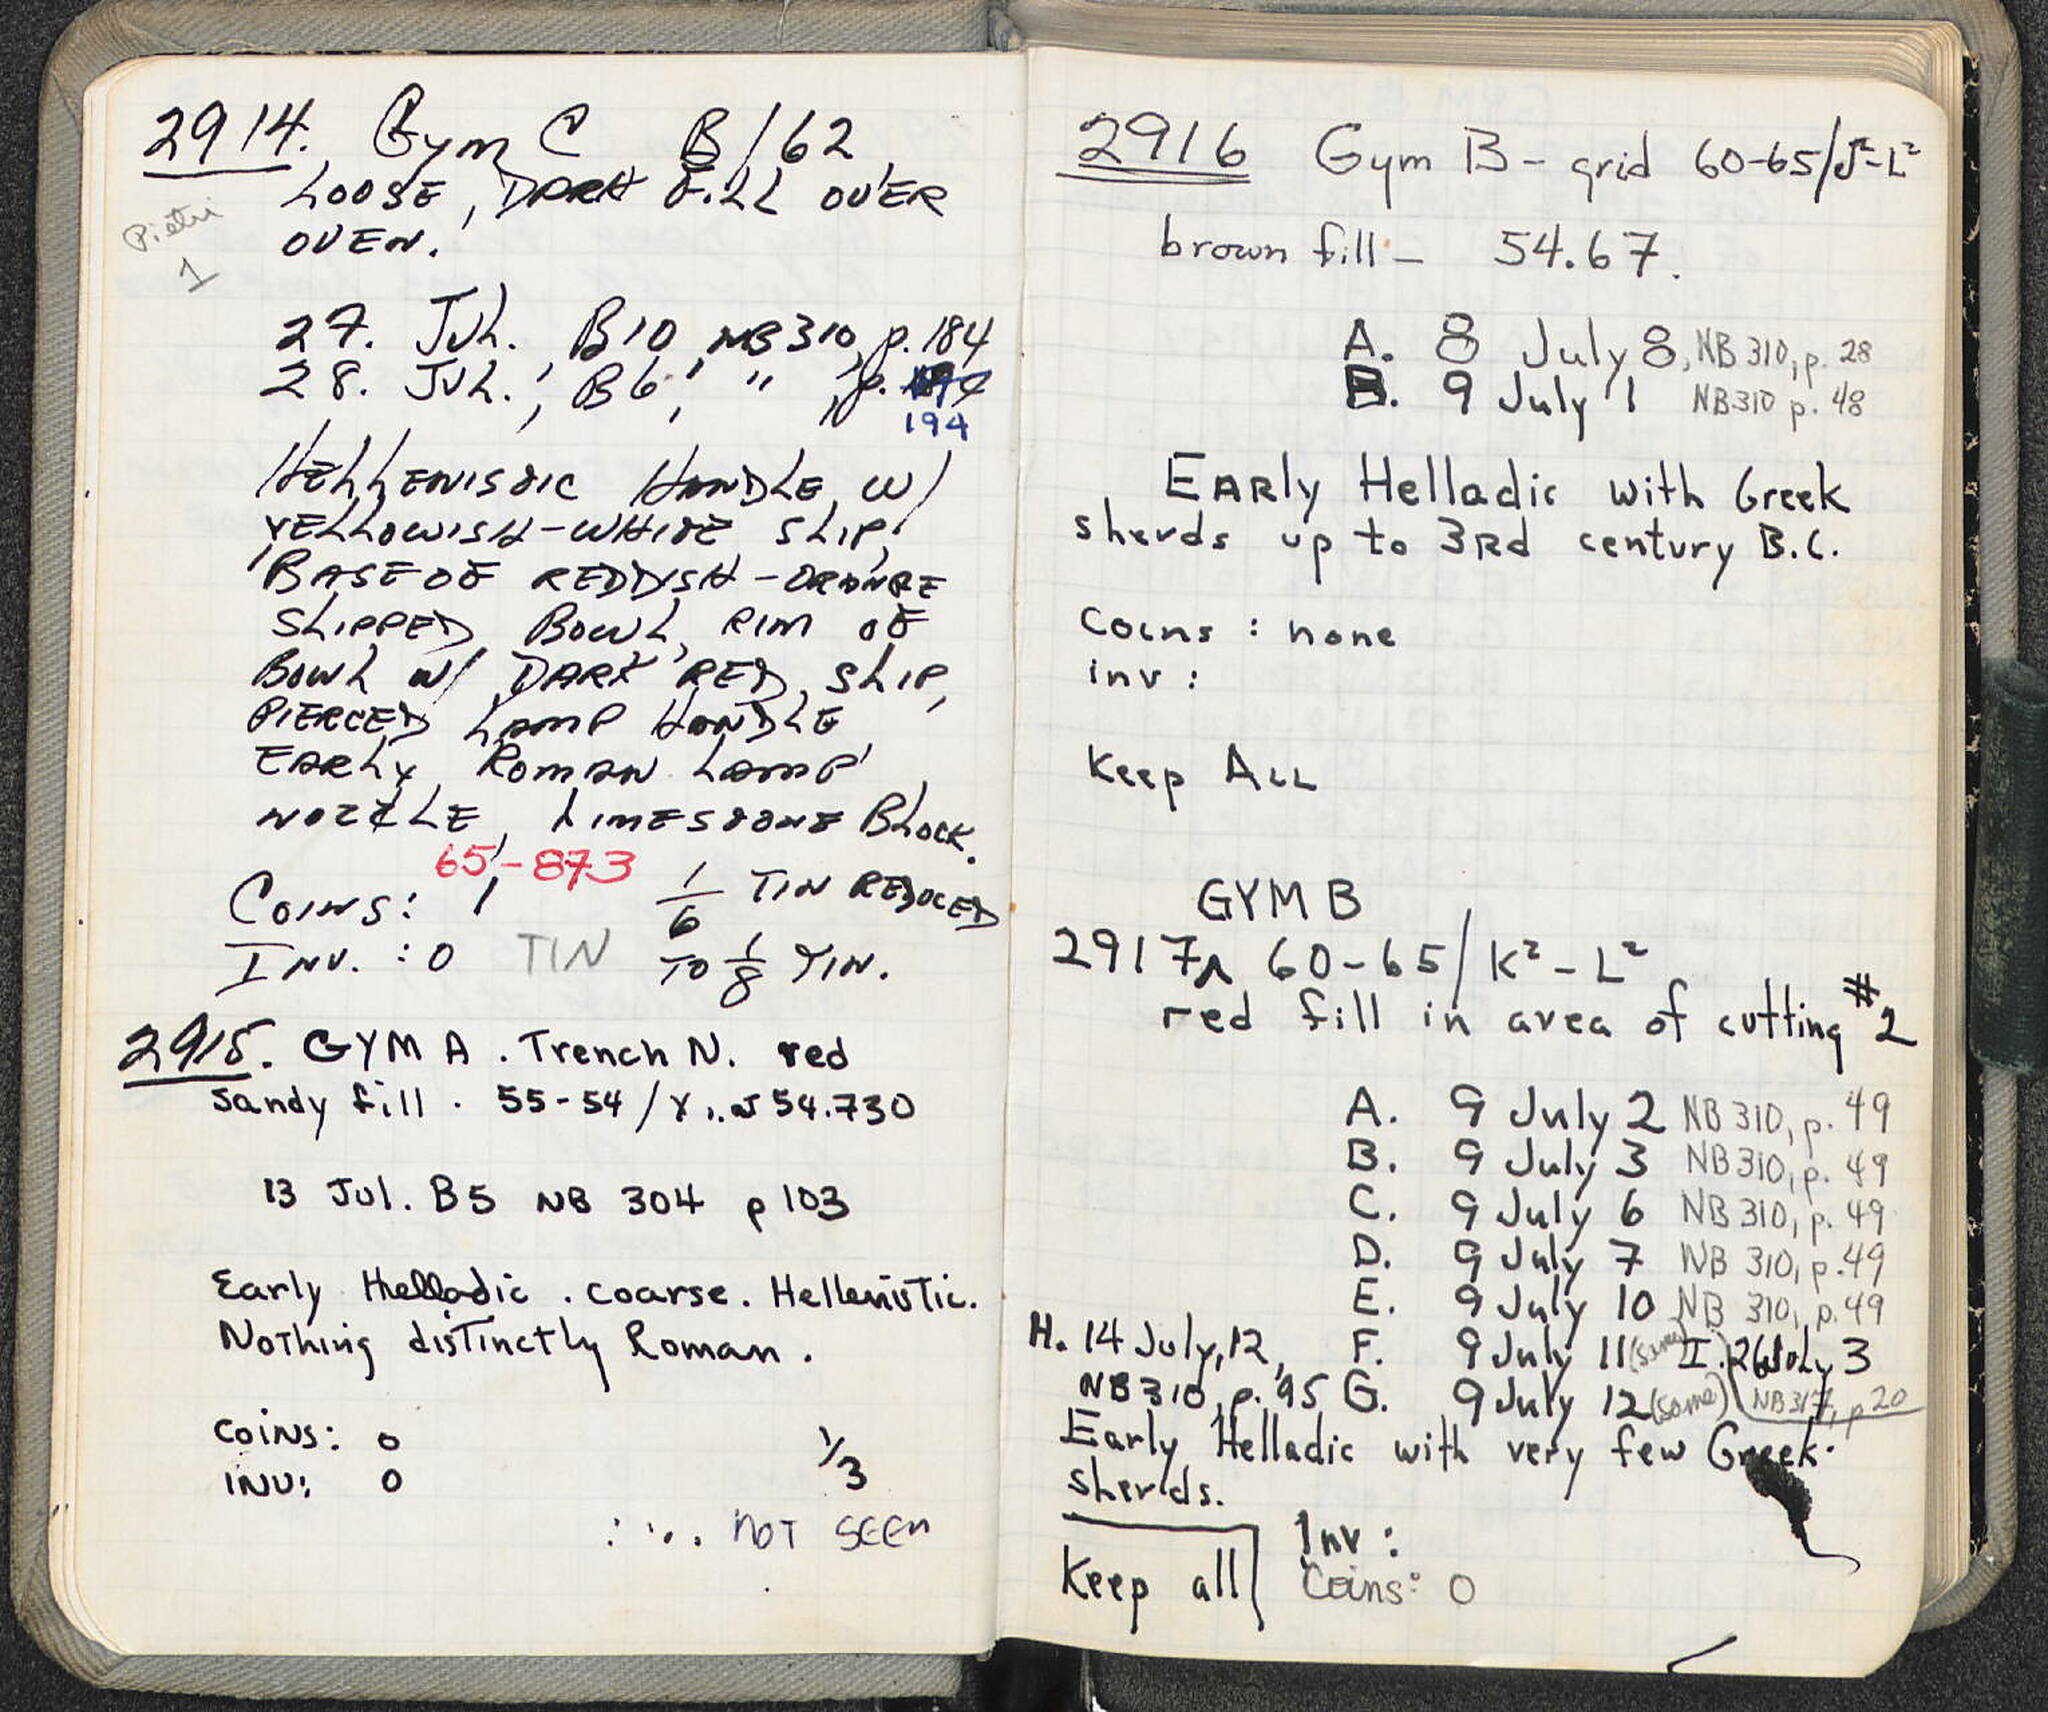 2914. Gym C B/62
LOOSE, DARK FILL OVER
OVEN.
Pietri
1
27. JUL. B10, NB 310, p. 184
28. JUL., B6, " , p.
194
HELLENISTIC HANDLE W/
YELLOWISH-WHITE SLIP,
BASE OF REDDISH-ORANGE
SLIPPED BOWL, RIM OF
BOWL W/ DARK RED SLIP,
PIERCED LAMP HANDLE
EARLY ROMAN LAMP
NOZZLE, LIMESTONE BLOCK.
65-873
COINS: 1 1/6 TIN REDUCED
INV. : 0 TIN TO 1/8 TIN.
2915. GYM A. Trench N. red
sandy fill. 55-54/Y 54.730
13 Jul. B5 NB 304 p 103
Early Helladic. coarse. Hellenistic.
Nothing distinctly Roman.
COINS: 0 1/3
INV: 0
NOT SEEN
2916 Gym B - grid 60-65/J²-L²
brown fill - 54.67.
A. 8 July 8, NB 310, p. 28
B. 9 July 1 NB310 p. 48
EARly Helladic with Greek
sherds up to 3Rd century B.C.
Coins : none
inv :
Keep ALL
GYM B
2917 60-65/K²-L²
red fill in area of cutting #2
A. 9 July 2 NB 310, p. 49
B. 9 July 3 NB 310, p. 49
C. 9 July 6 NB 310, p. 49
D. 9 July 7 NB 310, p. 49
E. 9 July 10 NB 310, p. 49
H. 14 July, 12, F. 9 July 11 (same) I. 26 July 3
NB 310, p. 95 G. 9 July 12 (same) NB 317, p 20
Early Helladic with very few Greek
sherds.
Inv :
Keep all Coins: 0